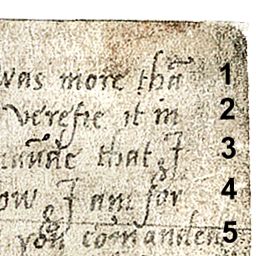 was more thā 1
verefie it in 2
that I 3
ow I am for 4
you comanded 5